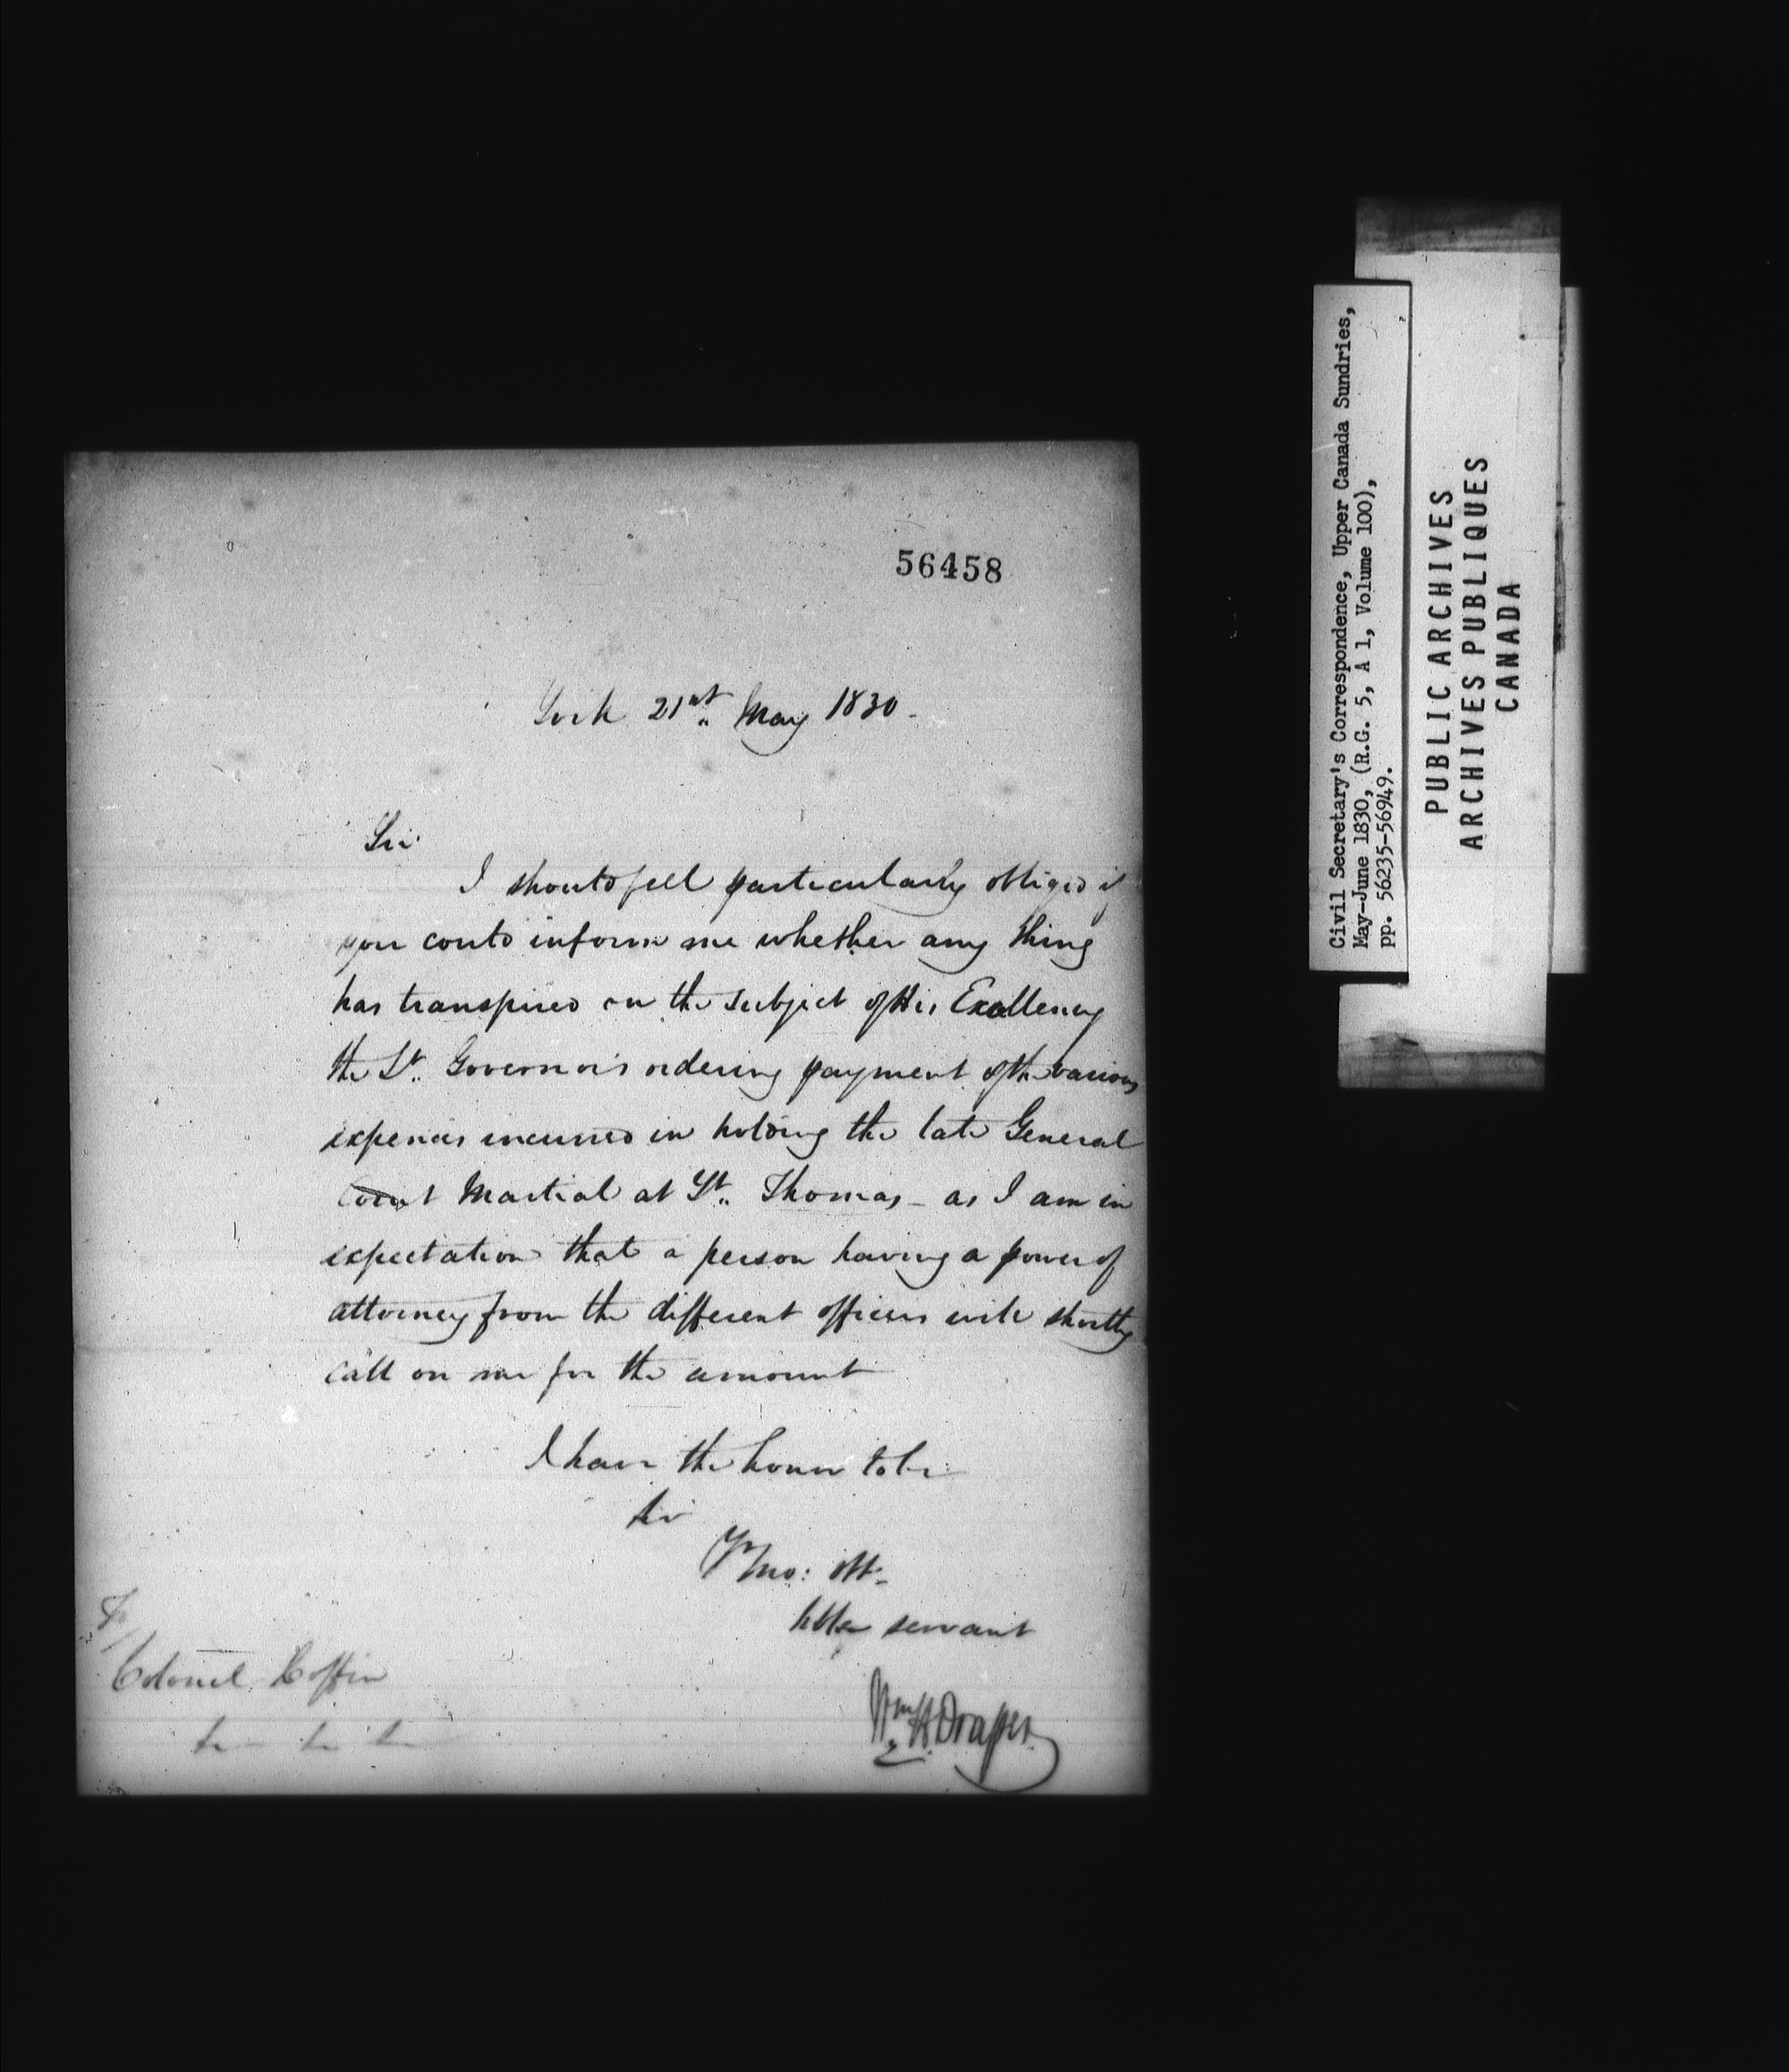 56458
York 21st May 1830.
Sir
I should feel particularly obliged if
you could inform me whether any thing
has transpired on the subject of His Excellency
the Lt. Governor's ordering payment of the various
expences incurred in holding the late General
Court Martial at St. Thomas - as I am in
expectation that a person having a power of
attorney from the different officers will shortly
call on me for the amount
I have the honor to be
Sir
Yr mo: obt.
hble servant
Wm H Draper
Colonel Coffin
Civil Secretary's Correspondence, Upper Canada Sundries,
May-June 1830, (R.G. 5, A 1, Volume 100),
pp. 56235-56949.
PUBLIC ARCHIVES
ARCHIVES PUBLIQUES
CANADA